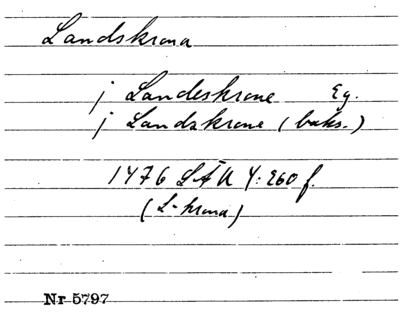 Landskrona
j Landeskrone Eg.
j Landzkrone (baks.)
1476 LÄU 4:260 f.
(L-krona)
Nr 5797